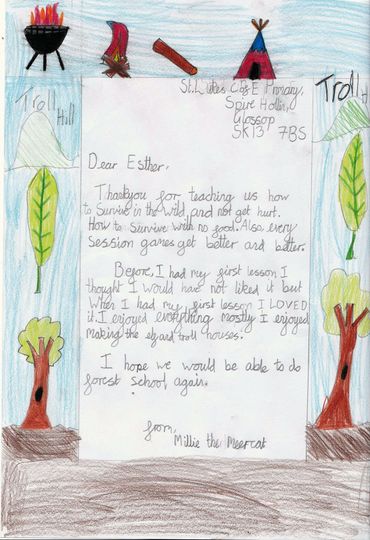 Troll
Hill
Troll
H
St.Lukes C of E Primary,
Spire Hollin,
Glossop
SK13 7BS
Dear Esther,
Thankyou for teaching us how
to Survive in the wild and not get hurt.
How to Survive with no food. Also, every
Session games get better and better.
Before, I had my first lesson I
thought I would have not liked it but
When I had my first lesson I LOVED
it. I enjoyed everything mostly I enjoyed
making the elf and troll houses.
I hope we would be able to do
forest school again.
from,
Millie the Meercat